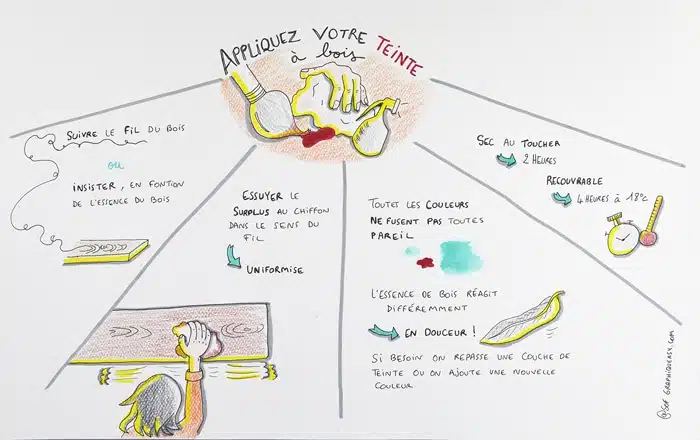 APPLIQUEZ VOTRE TEINTE
à bois
SUIVRE LE FIL DU BOIS
OU
INSISTER, EN FONTION
DE L'ESSENCE DU BOIS
ESSUYER LE
SURPLUS AU CHIFFON
DANS LE SENS DU
FIL
UNIFORMISE
TOUTES LES COULEURS
NE FUSENT PAS TOUTES
PAREIL
L'ESSENCE DE BOIS RÉAGIT
DIFFÉREMMENT
EN DOUCEUR !
SI BESOIN ON REPASSE UNE COUCHE DE
TEINTE OU ON AJOUTE UNE NOUVELLE
COULEUR
SEC AU TOUCHER
2 HEURES
RECOUVRABLE
4 HEURES à 18°C
@SOF GRAPHIQUEASY.COM